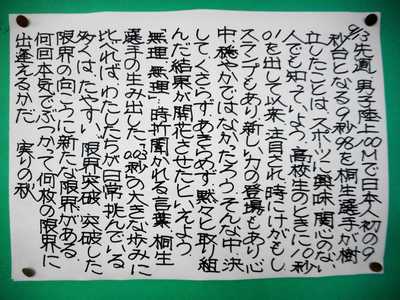 先週、男子陸上100Mで日本人初の9
秒台となる9秒98を桐生選手が樹
立したことは、スポーツに興味関心のない
人でも知っていよう。高校生のときに10秒
01を出して以来、注目され、時にけがもし
スランプもあり、新しい力の登場もあり、心
中穏やかではなかったろう。そんな中、決
してくさらず、あきらめず、黙々と取組
んだ結果が開花させたといえよう。
無理、無理…時折聞かれる言葉。桐生
選手の生み出した0.03秒の大きな歩みに
比べれば、わたしたちが日常挑んでいる
多くは、たやすい。限界突破。突破した
限界の向こうに新たな限界がある。
何回本気でぶつかって、何枚の限界に
出逢えるかだ。 実りの秋